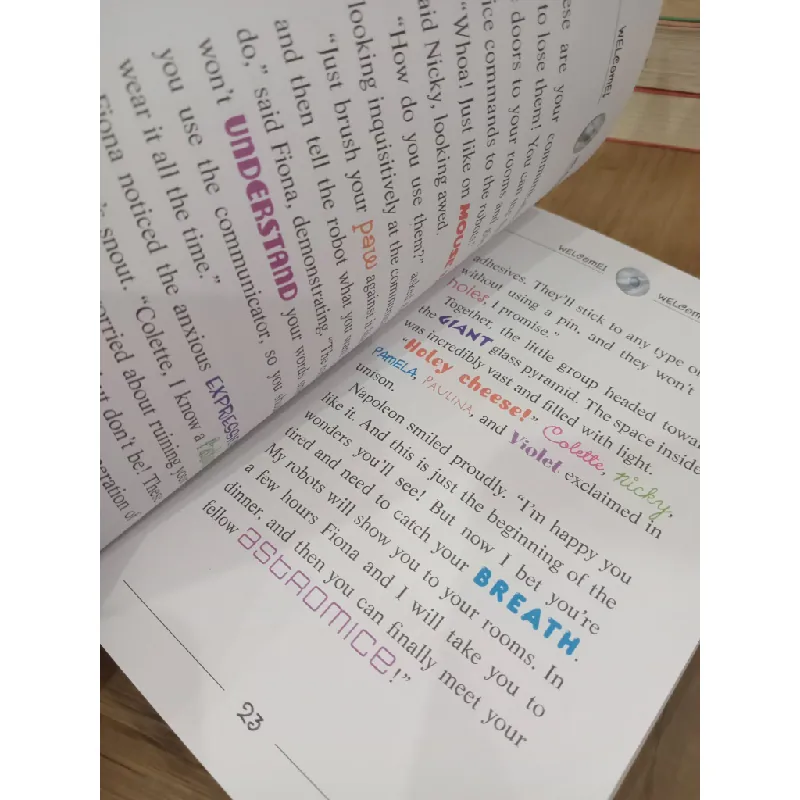 WELCOME!
ese are your commun
to lose them! You can us
doors to your rooms and g
ice commands to the robots!
"Whoa! Just like on MOUSE
aid Nicky, looking awed.
"How do you use them?" asked
looking inquisitively at the commun
"Just brush your paw against it
and then tell the robot what you
do," said Fiona, demonstrating. "The
won't UNDERSTAND your words
you use the communicator, so you
wear it all the time."
Fiona noticed the anxious EXPRESS
snout. "Colette, I know
orried about ruining you
ut don't be! Thes
eration of
WELCOME!
WELCOME
adhesives. They'll stick to any type of
without using a pin, and they won't
holes, I promise."
Together, the little group headed towar
the GIANT glass pyramid. The space inside
was incredibly vast and filled with light.
"Holey cheese!" Colette, Nicky,
PAMELA, PAULINA, and Violet exclaimed in
unison.
Napoleon smiled proudly. "I'm happy you
like it. And this is just the beginning of the
wonders you'll see! But now I bet you're
tired and need to catch your BREATH.
My robots will show you to your rooms. In
a few hours Fiona and I will take you to
dinner, and then you can finally meet your
fellow astromice!"
23